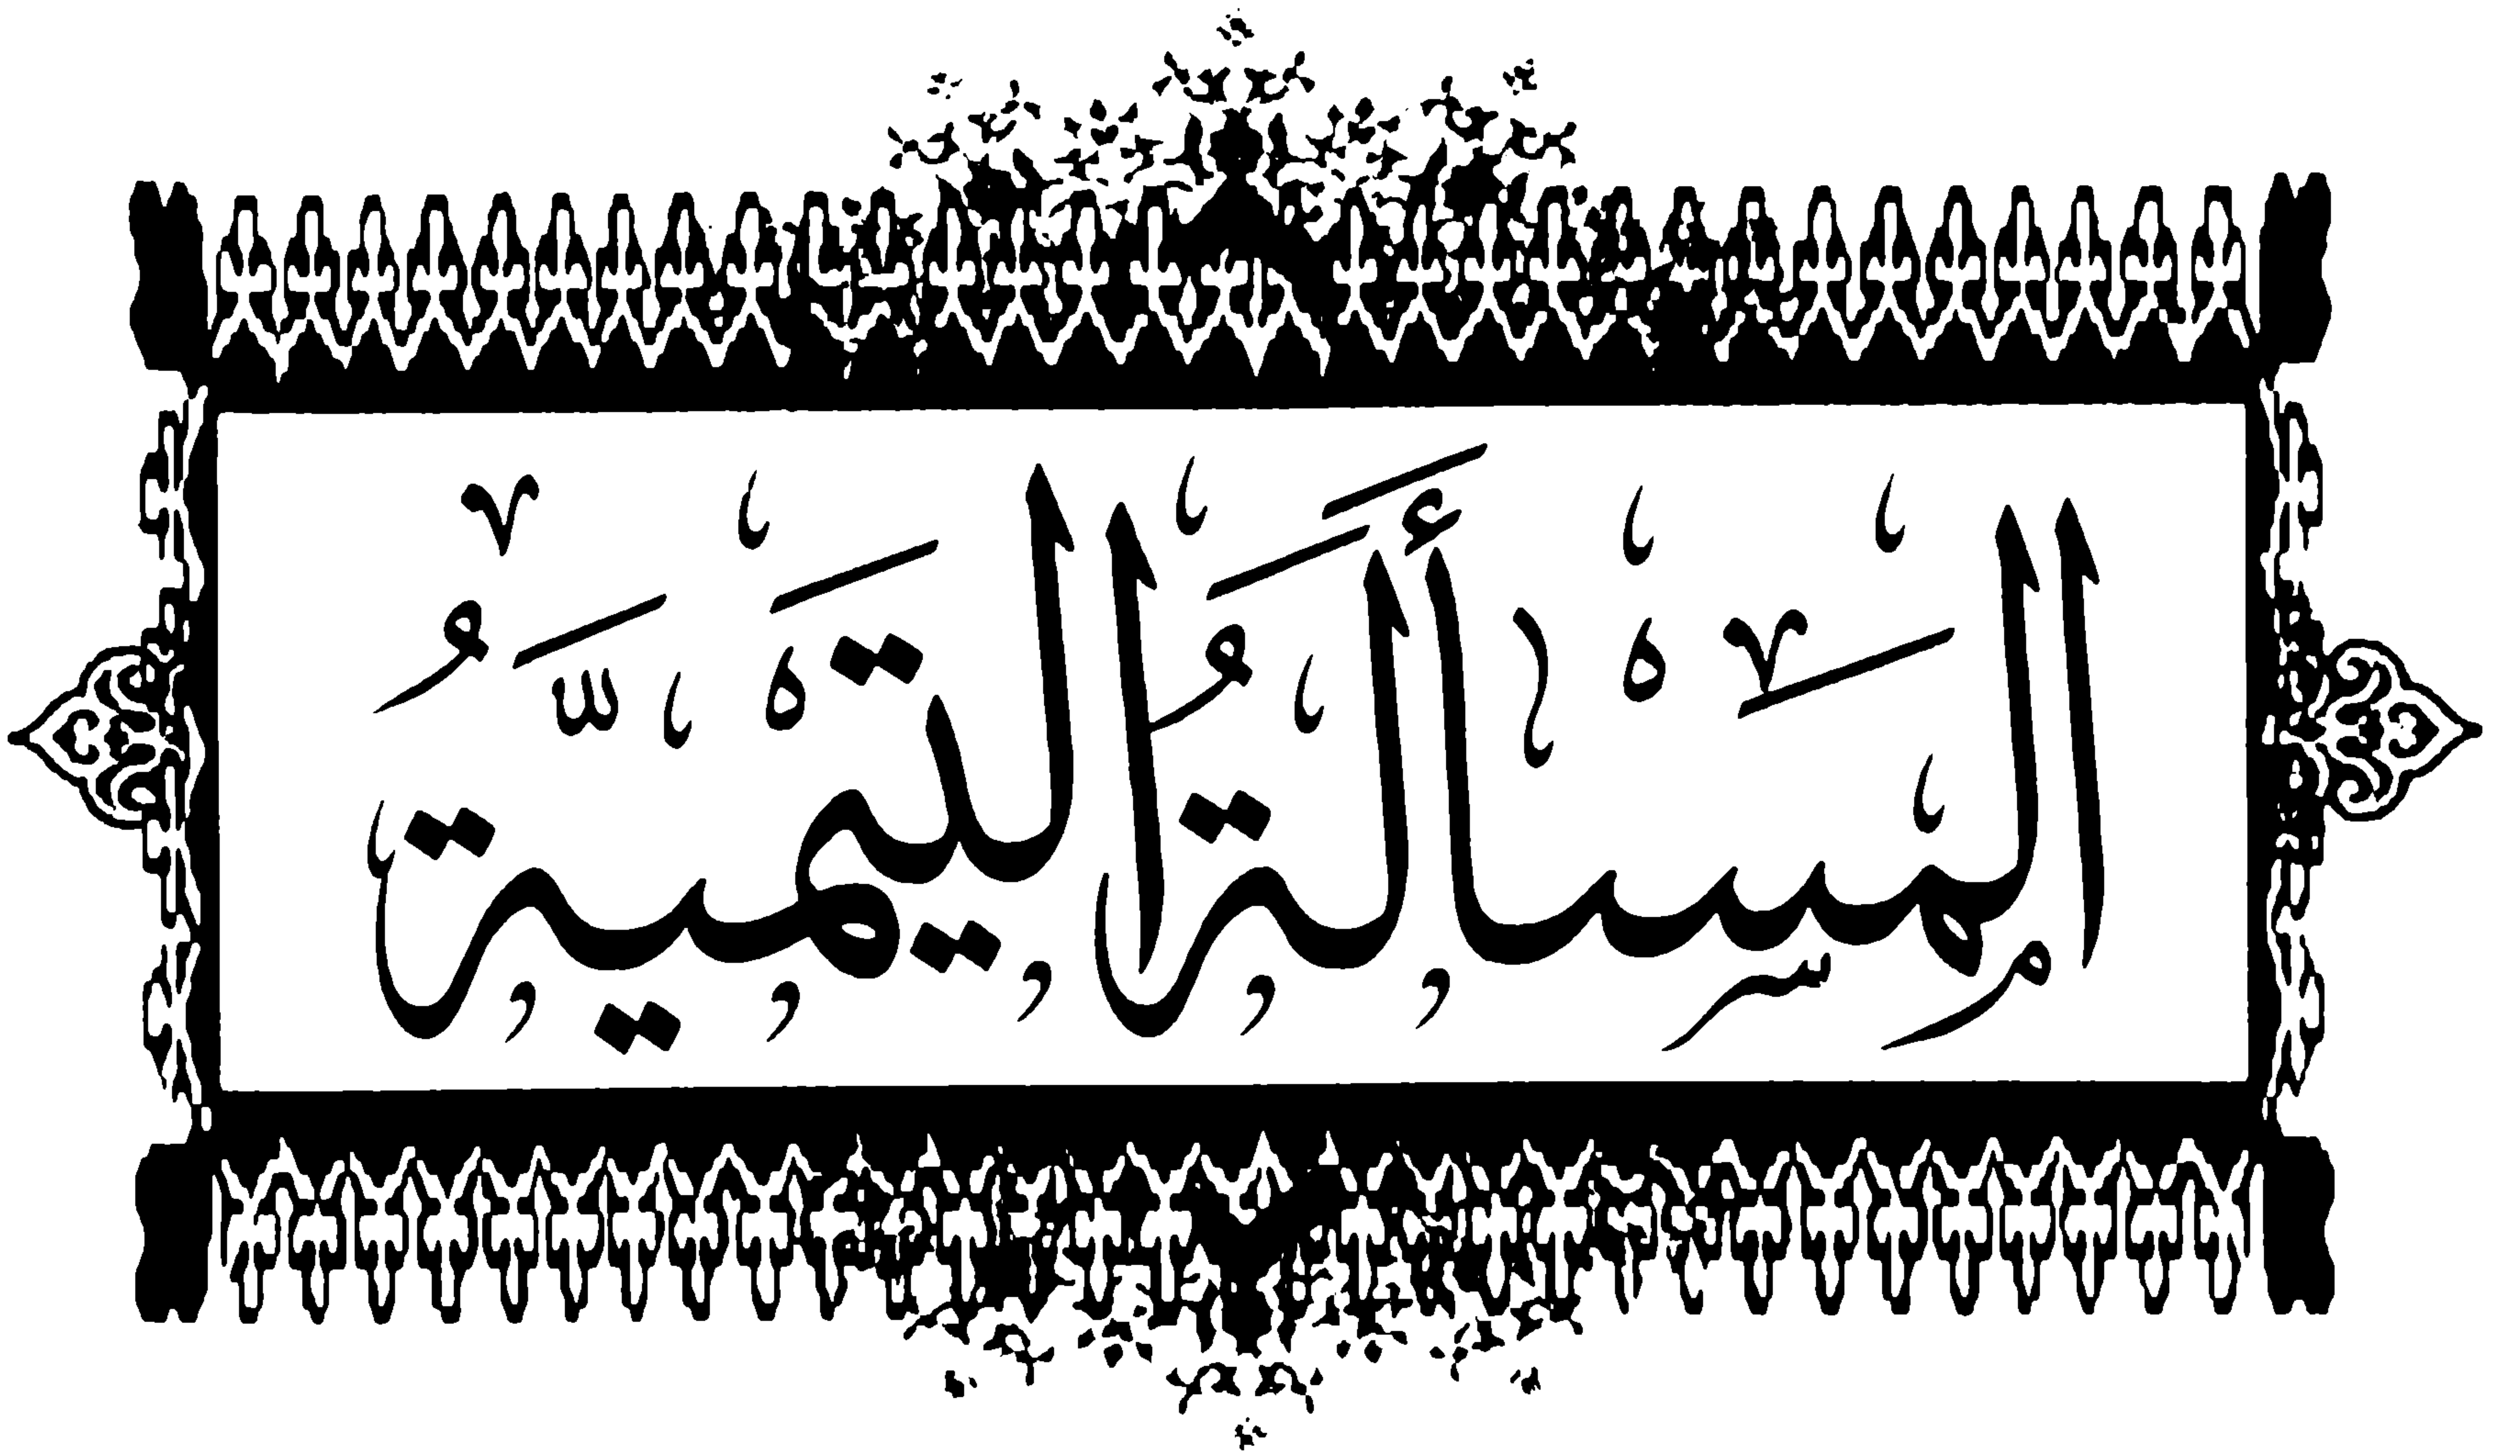 المسألة التيمية